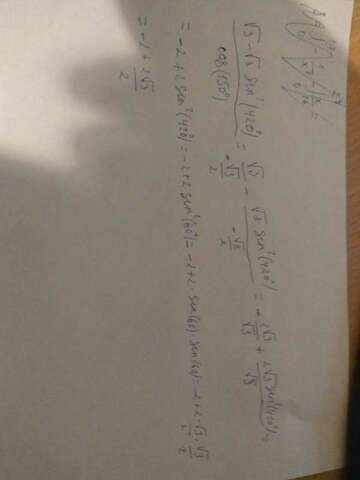 √3 - √3 sen²(420°) / cos(150°) = √3 / (-√3/2) - √3 sen²(420°) / (-√3/2) = - 2√3/√3 + 2√3 sen²(420°)/√3 =
= -2 + 2 sen²(420°) = -2 + 2 sen²(60°) = -2 + 2 · sen(60) · sen(60) = -2 + 2 · √3/2 · √3/2
= -2 + 2√3/2